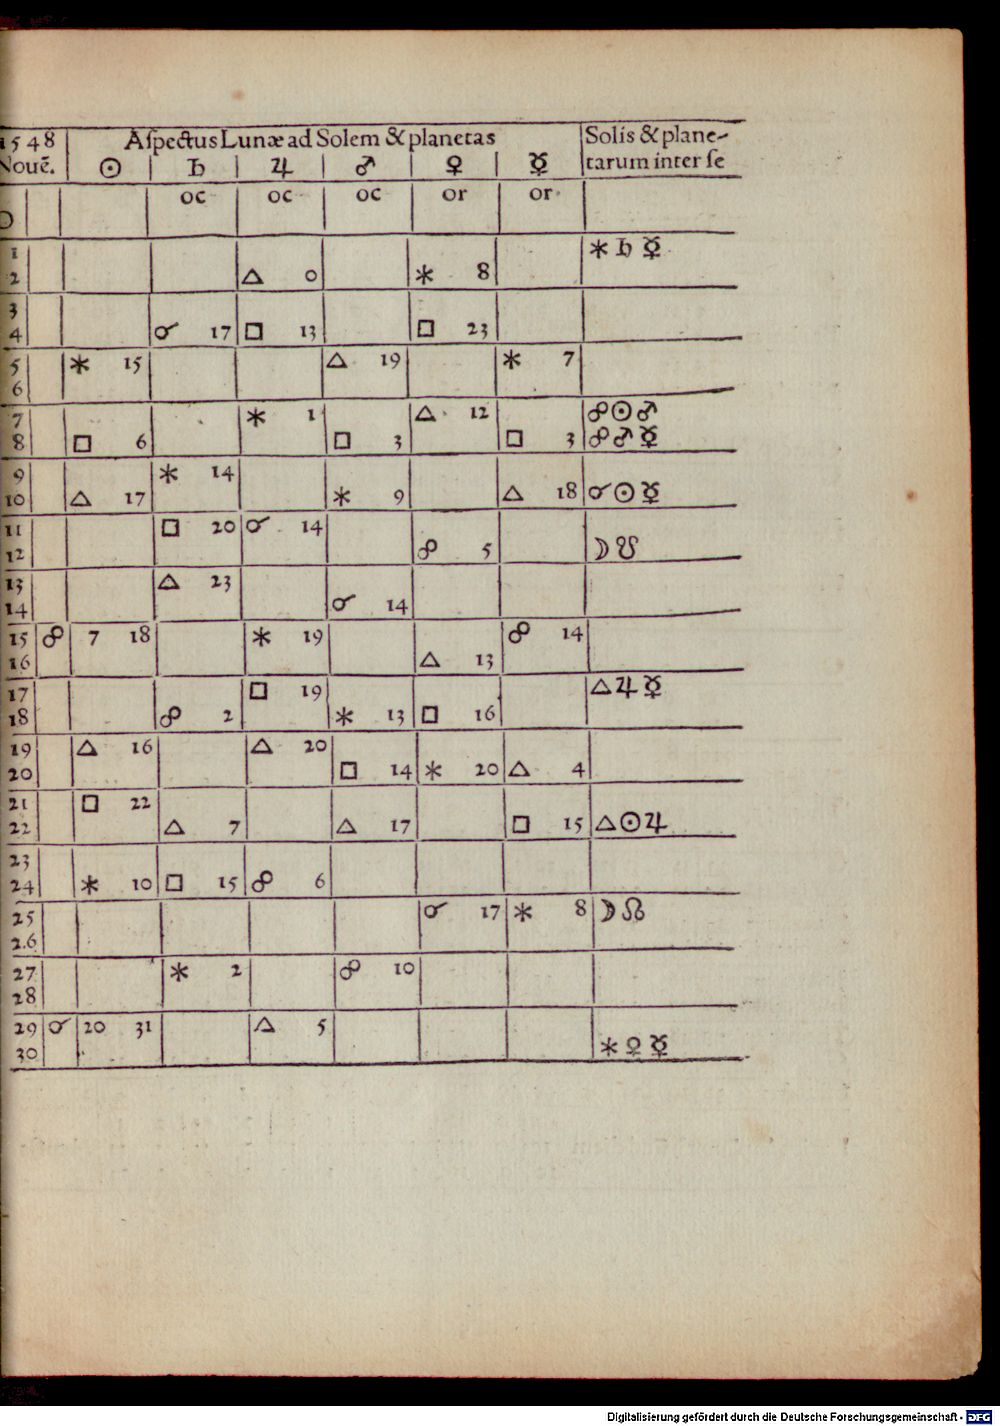 1548 Aſpectus Lunæ ad Solem & planetas Solis & plane-
Nouẽ. ☉ ♄ ♃ ♂ ♀ ☿ tarum inter ſe
oc oc oc or or
1 ⚹ ♄ ☿
2 △ 0 ⚹ 8
3
4 ☌ 17 □ 13 □ 23
5 ⚹ 15 △ 19 ⚹ 7
6
7 ⚹ 1 △ 12 ☍ ☉ ♂
8 □ 6 □ 3 □ 3 ☍ ♂ ☿
9 ⚹ 14
10 △ 17 ⚹ 9 △ 18 ☌ ☉ ☿
11 □ 20 ☌ 14
12 ☍ 5 ☽ ☋
13 △ 23
14 ☌ 14
15 ☍ 7 18 ⚹ 19 ☍ 14
16 △ 13
17 □ 19 △ ♃ ☿
18 ☍ 2 ⚹ 13 □ 16
19 △ 16 △ 20
20 □ 14 ⚹ 20 △ 4
21 □ 22
22 △ 7 △ 17 □ 15 △ ☉ ♃
23
24 ⚹ 10 □ 15 ☍ 6
25 ☌ 17 ⚹ 8 ☽ ☊
26
27 ⚹ 2 ☍ 10
28
29 ☌ 20 31 △ 5
30 ⚹ ♀ ☿
Digitalisierung gefördert durch die Deutsche Forschungsgemeinschaft - DFG